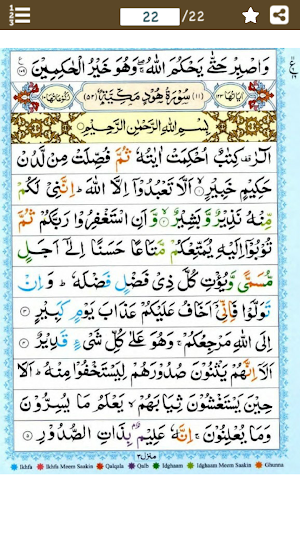 22 /22
وَاصْبِرْ حَتّٰى يَحْكُمَ اللّٰهُ ۖۚ وَهُوَ خَيْرُ الْحٰكِمِيْنَ ۝۱۰۹
(۱۱) سُوْرَةُ هُوْدٍ مَّكِّيَّةٌ (۵۲)
بِسْمِ اللّٰهِ الرَّحْمٰنِ الرَّحِيْمِ
الٓرٰ ۫ كِتٰبٌ اُحْكِمَتْ اٰيٰتُهٗ ثُمَّ فُصِّلَتْ مِنْ لَّدُنْ
حَكِيْمٍ خَبِيْرٍ ۝۱ اَلَّا تَعْبُدُوْۤا اِلَّا اللّٰهَ ؕ اِنَّنِيْ لَكُمْ
مِّنْهُ نَذِيْرٌ وَّبَشِيْرٌ ۝۲ وَّاَنِ اسْتَغْفِرُوْا رَبَّكُمْ ثُمَّ
تُوْبُوْۤا اِلَيْهِ يُمَتِّعْكُمْ مَّتَاعًا حَسَنًا اِلٰۤى اَجَلٍ
مُّسَمًّى وَّيُؤْتِ كُلَّ ذِيْ فَضْلٍ فَضْلَهٗ ؕ وَاِنْ
تَوَلَّوْا فَاِنِّيْۤ اَخَافُ عَلَيْكُمْ عَذَابَ يَوْمٍ كَبِيْرٍ ۝۳
اِلَى اللّٰهِ مَرْجِعُكُمْ ۚ وَهُوَ عَلٰى كُلِّ شَيْءٍ قَدِيْرٌ ۝۴
اَلَاۤ اِنَّهُمْ يَثْنُوْنَ صُدُوْرَهُمْ لِيَسْتَخْفُوْا مِنْهُ ؕ اَلَا
حِيْنَ يَسْتَغْشُوْنَ ثِيَابَهُمْ ۙ يَعْلَمُ مَا يُسِرُّوْنَ
وَمَا يُعْلِنُوْنَ ۚ اِنَّهٗ عَلِيْمٌۢ بِذَاتِ الصُّدُوْرِ ۝۵
منزل ۳
Ikhfa Ikhfa Meem Saakin Qalqala Qalb Idghaam Idghaam Meem Saakin Ghunna